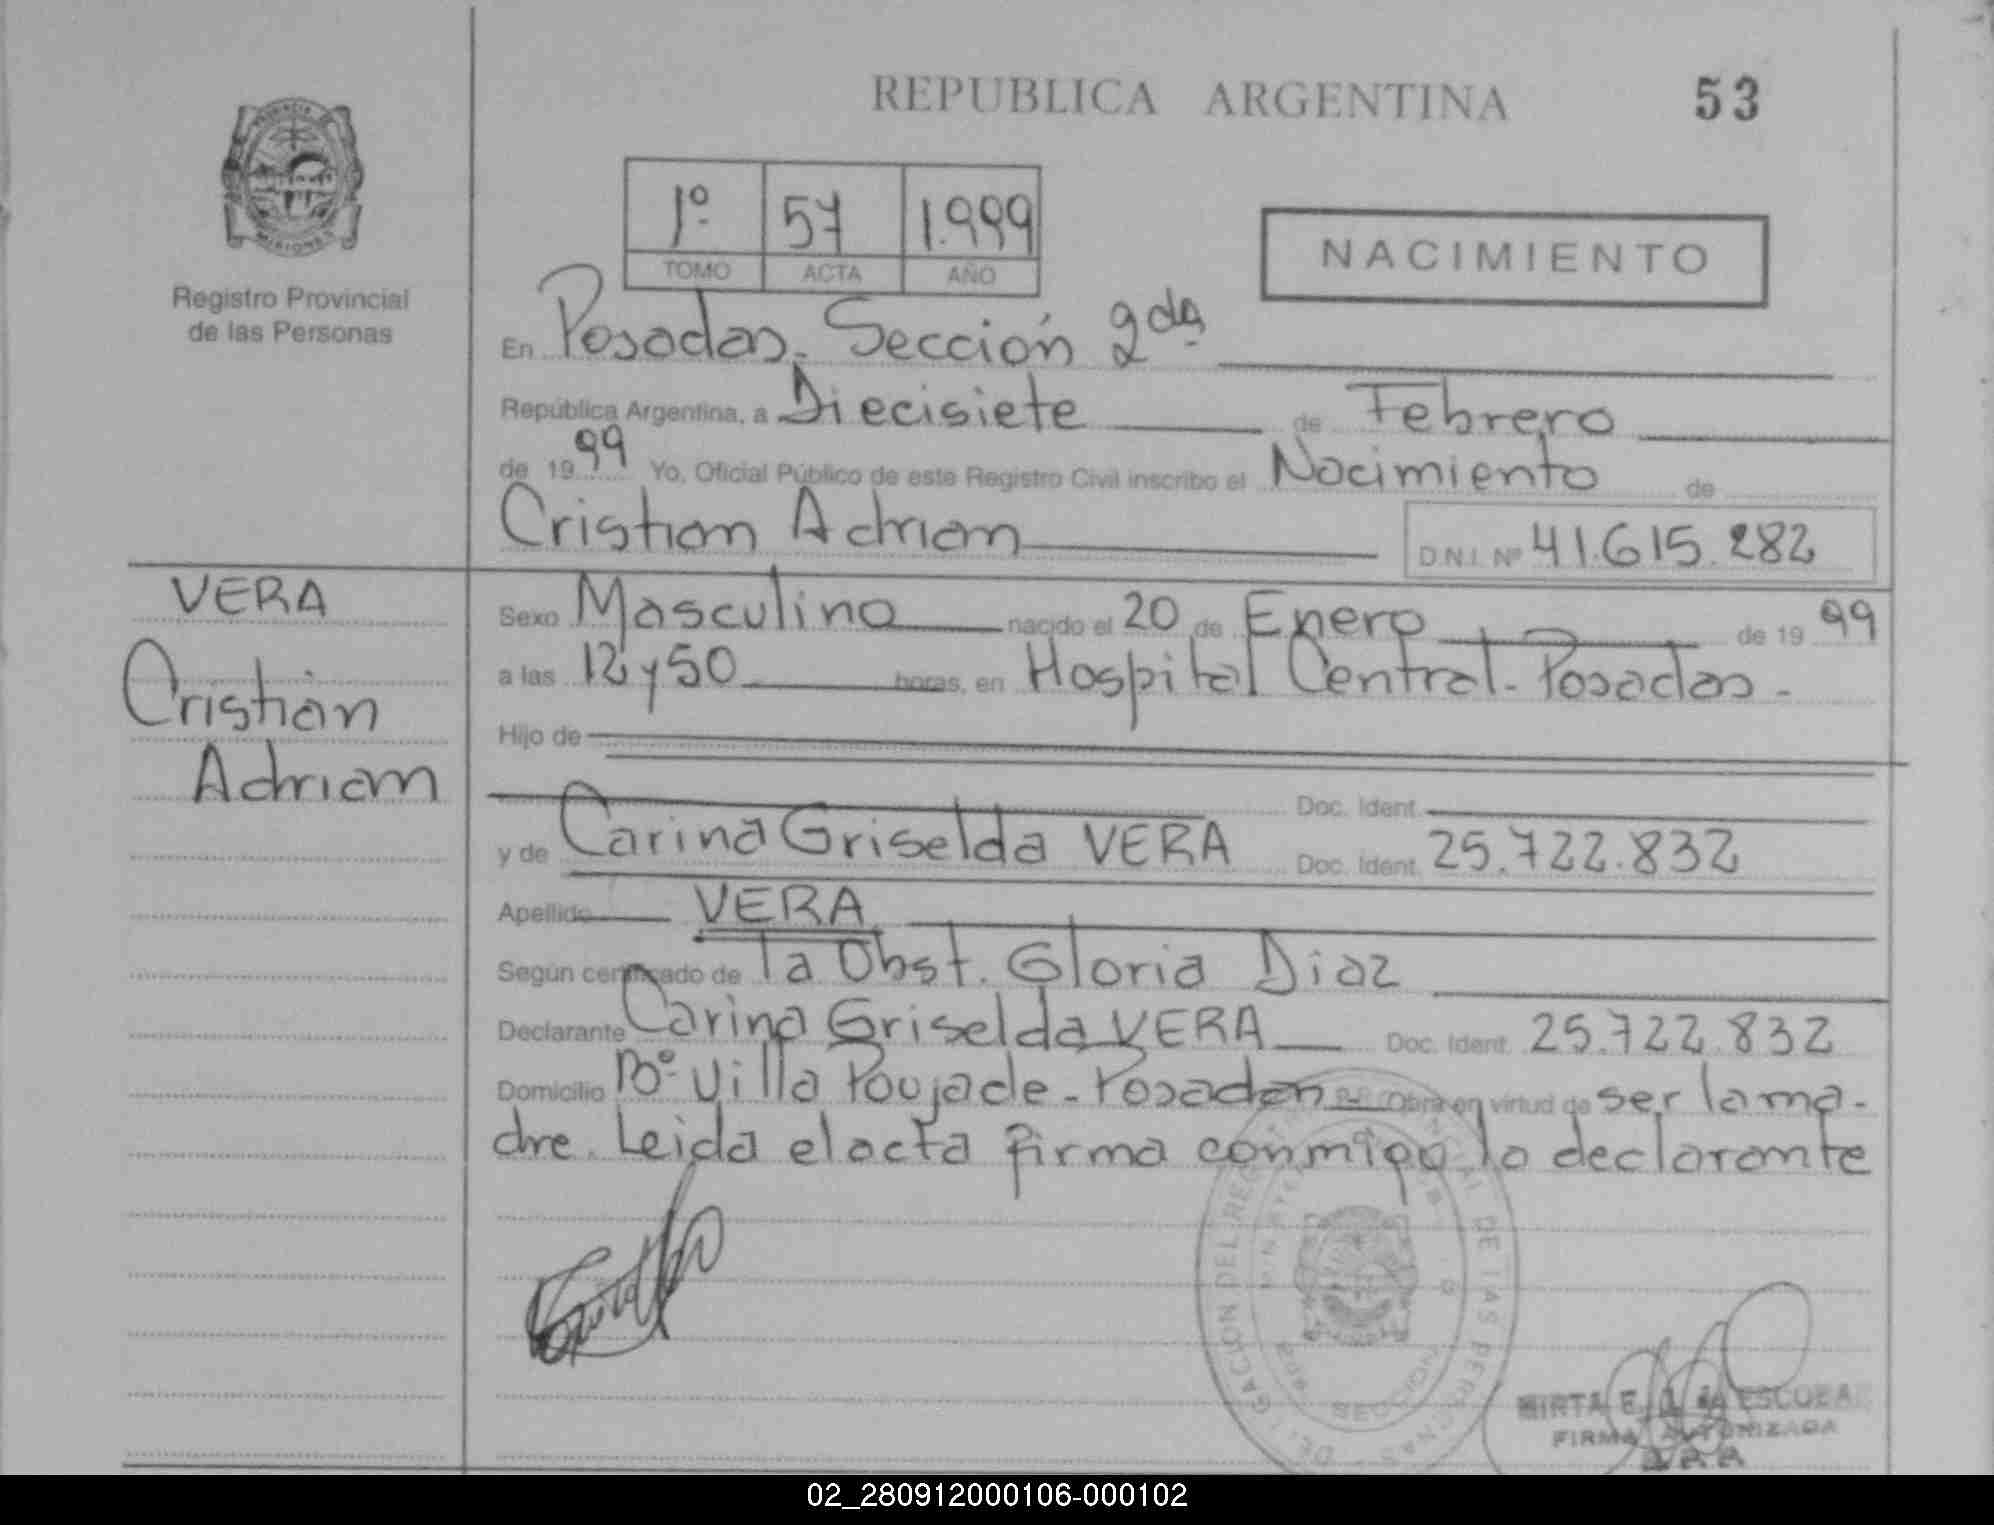 REPUBLICA ARGENTINA
53
PROVINCIA DE
MISIONES
Registro Provincial
de las Personas
1º 57 1.999
TOMO ACTA AÑO
NACIMIENTO
En Posadas. Sección 2da
República Argentina, a Diecisiete de Febrero
de 1999 Yo, Oficial Público de este Registro Civil inscribo el Nacimiento de
Cristian Adrian D.N.I. Nº 41.615.282
VERA
Cristian
Adrian
Sexo Masculino nacido el 20 de Enero de 19 99
a las 12 y 50 horas, en Hospital Central. Posadas.
Hijo de
Doc. Ident.
y de Carina Griselda VERA Doc. Ident. 25.722.832
Apellido VERA
Según certificado de la Obst. Gloria Diaz
Declarante Carina Griselda VERA Doc. Ident. 25.722.832
Domicilio Bº Villa Poujade - Posadas Obra en virtud de ser la ma-
dre. Leida el acta firma conmigo la declarante
DELEGACION DEL REGISTRO PROVINCIAL DE LAS PERSONAS
SECCION
MIRTA E. de ESCOBAR
FIRMA AUTORIZADA
02_280912000106-000102